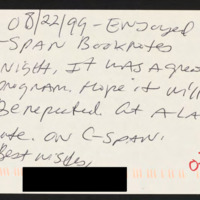 08/22/99 - ENJOYED
-SPAN Booknotes
NIGHT, IT WAS A grea
ogram. Hope it will
Be repeated AT A LA
ate. ON C-SPAN.
Best wishes,